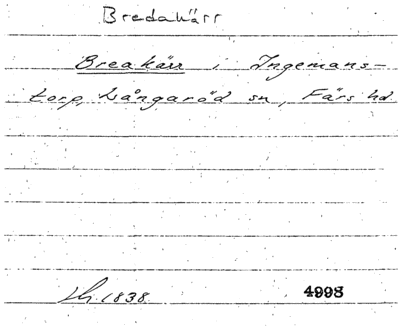 Bredakärr
Breakärr i Ingemans-
torp, Långaröd sn, Färs hd
1838.
4998